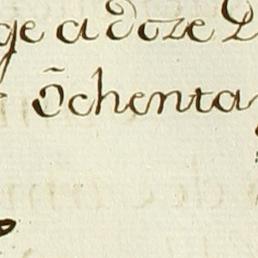 ge a doze
ōchenta